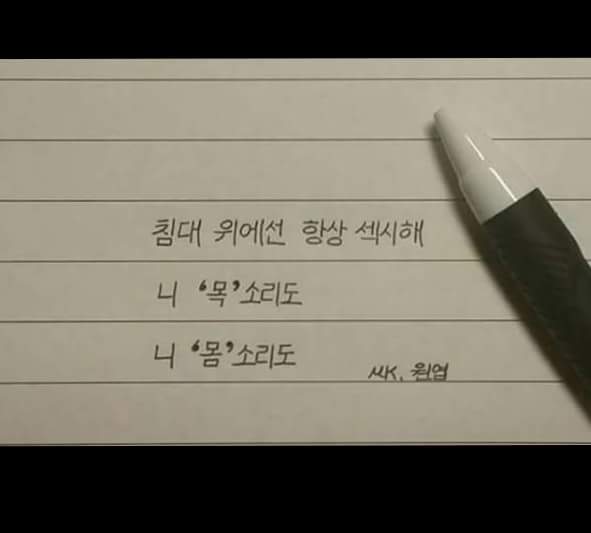 침대 위에선 항상 섹시해
니 '목'소리도
니 '몸'소리도
씨K. 원엽